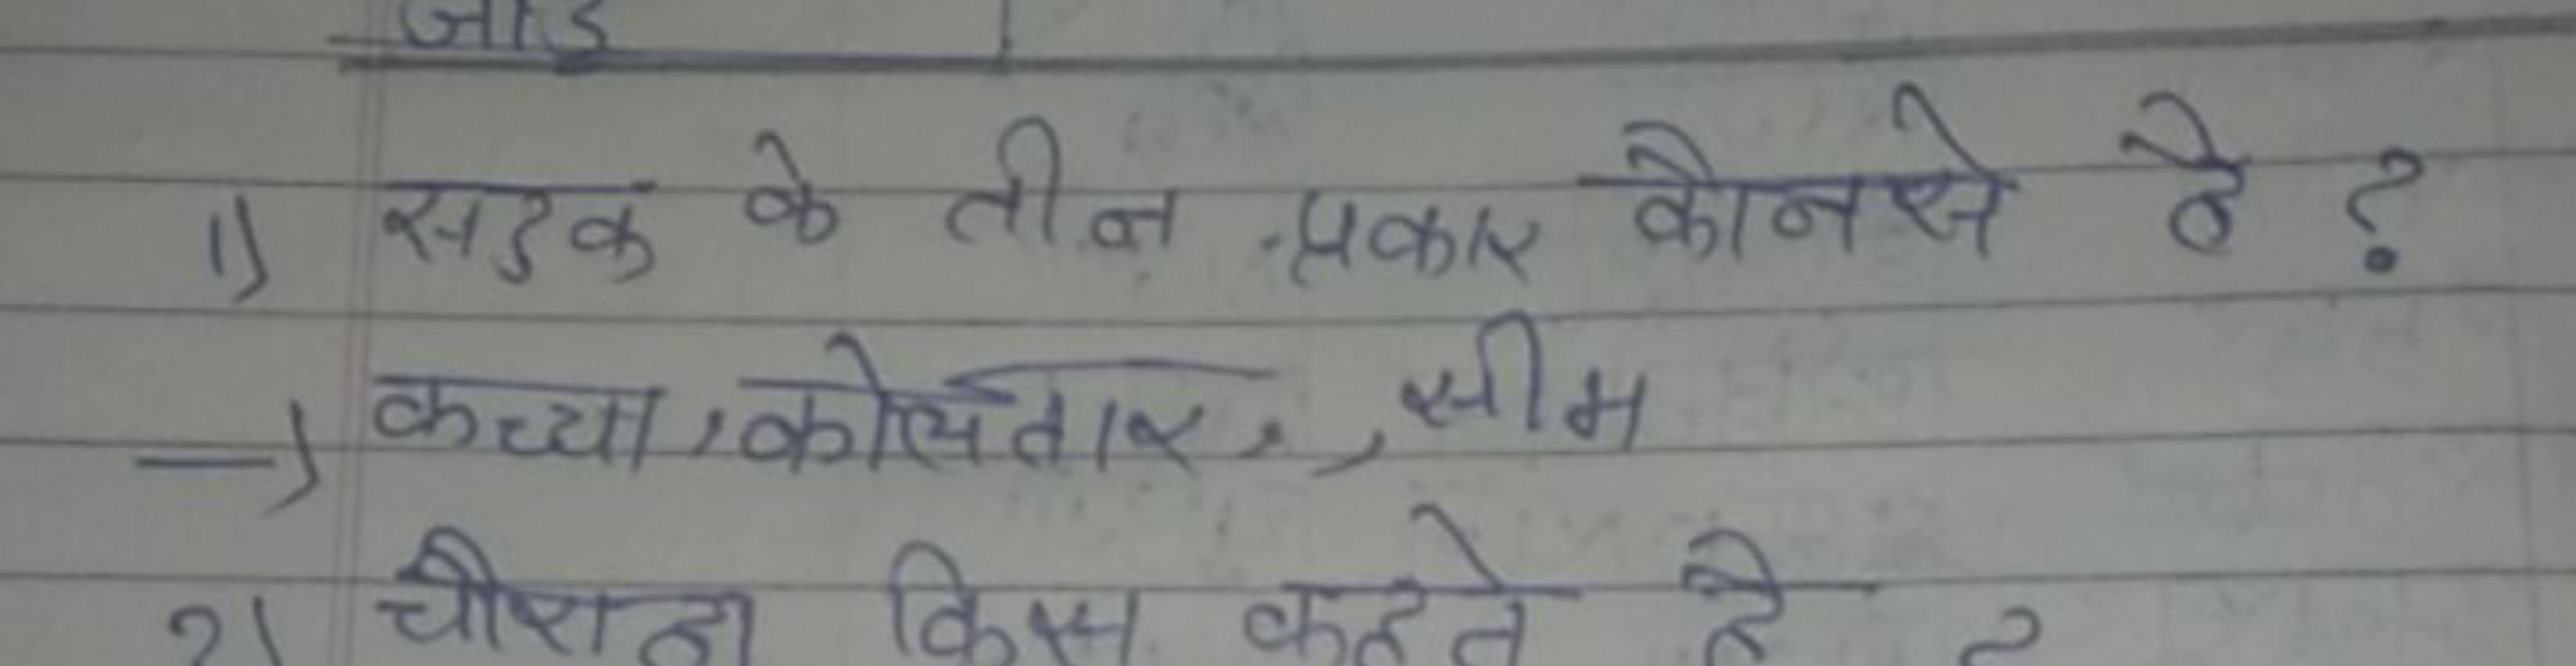 जोड
1) सड़क के तीन प्रकार कौनसे है ?
→ कच्चा, कोलतार, , सीम
2) चौराहा किस कहते है ?